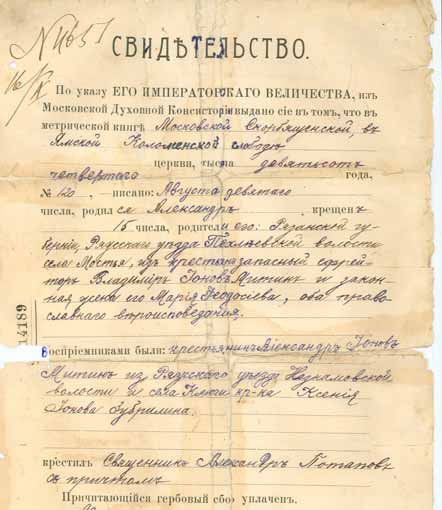 СВИДѢТЕЛЬСТВО.
По указу ЕГО ИМПЕРАТОРСКАГО ВЕЛИЧЕСТВА, изъ
Московской Духовной Консисторіи выдано сіе въ томъ, что въ
метрической книгѣ Московской Скорбященской, въ
Ямской Коломенской слободѣ
церкви, тысяча девятьсотъ
четвертаго года,
№ 120, писано: Августа девятаго
числа, родился Александръ, крещенъ
15 числа, родители его: Рязанской гу-
берніи, Ряжскаго уѣзда волости
села Мостья, изъ крестьянъ запасный ефрей-
торъ Владиміръ Іоновъ Митинъ и закон-
ная жена его Марія Ѳеодосіева, оба право-
славнаго вѣроисповѣданія.
14189
Воспріемниками были: крестьянинъ Александръ Іоновъ
Митинъ из Ряжскаго уѣзда
волости и села Ключи кр-ка Ксенія
Іонова
крестилъ Священникъ Александръ Потаповъ
съ причтомъ
Причитающійся гербовый сборъ уплаченъ.